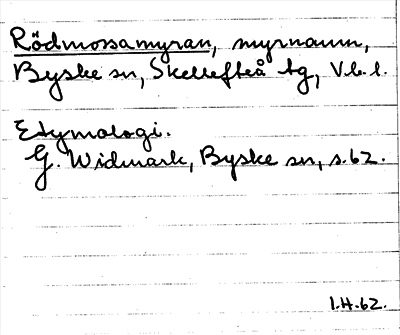 Rödmossamyran, myrnamn,
Byske sn, Skellefteå tg, Vb. l.
Etymologi.
G. Widmark, Byske sn, s. 62.
I.H. 62.